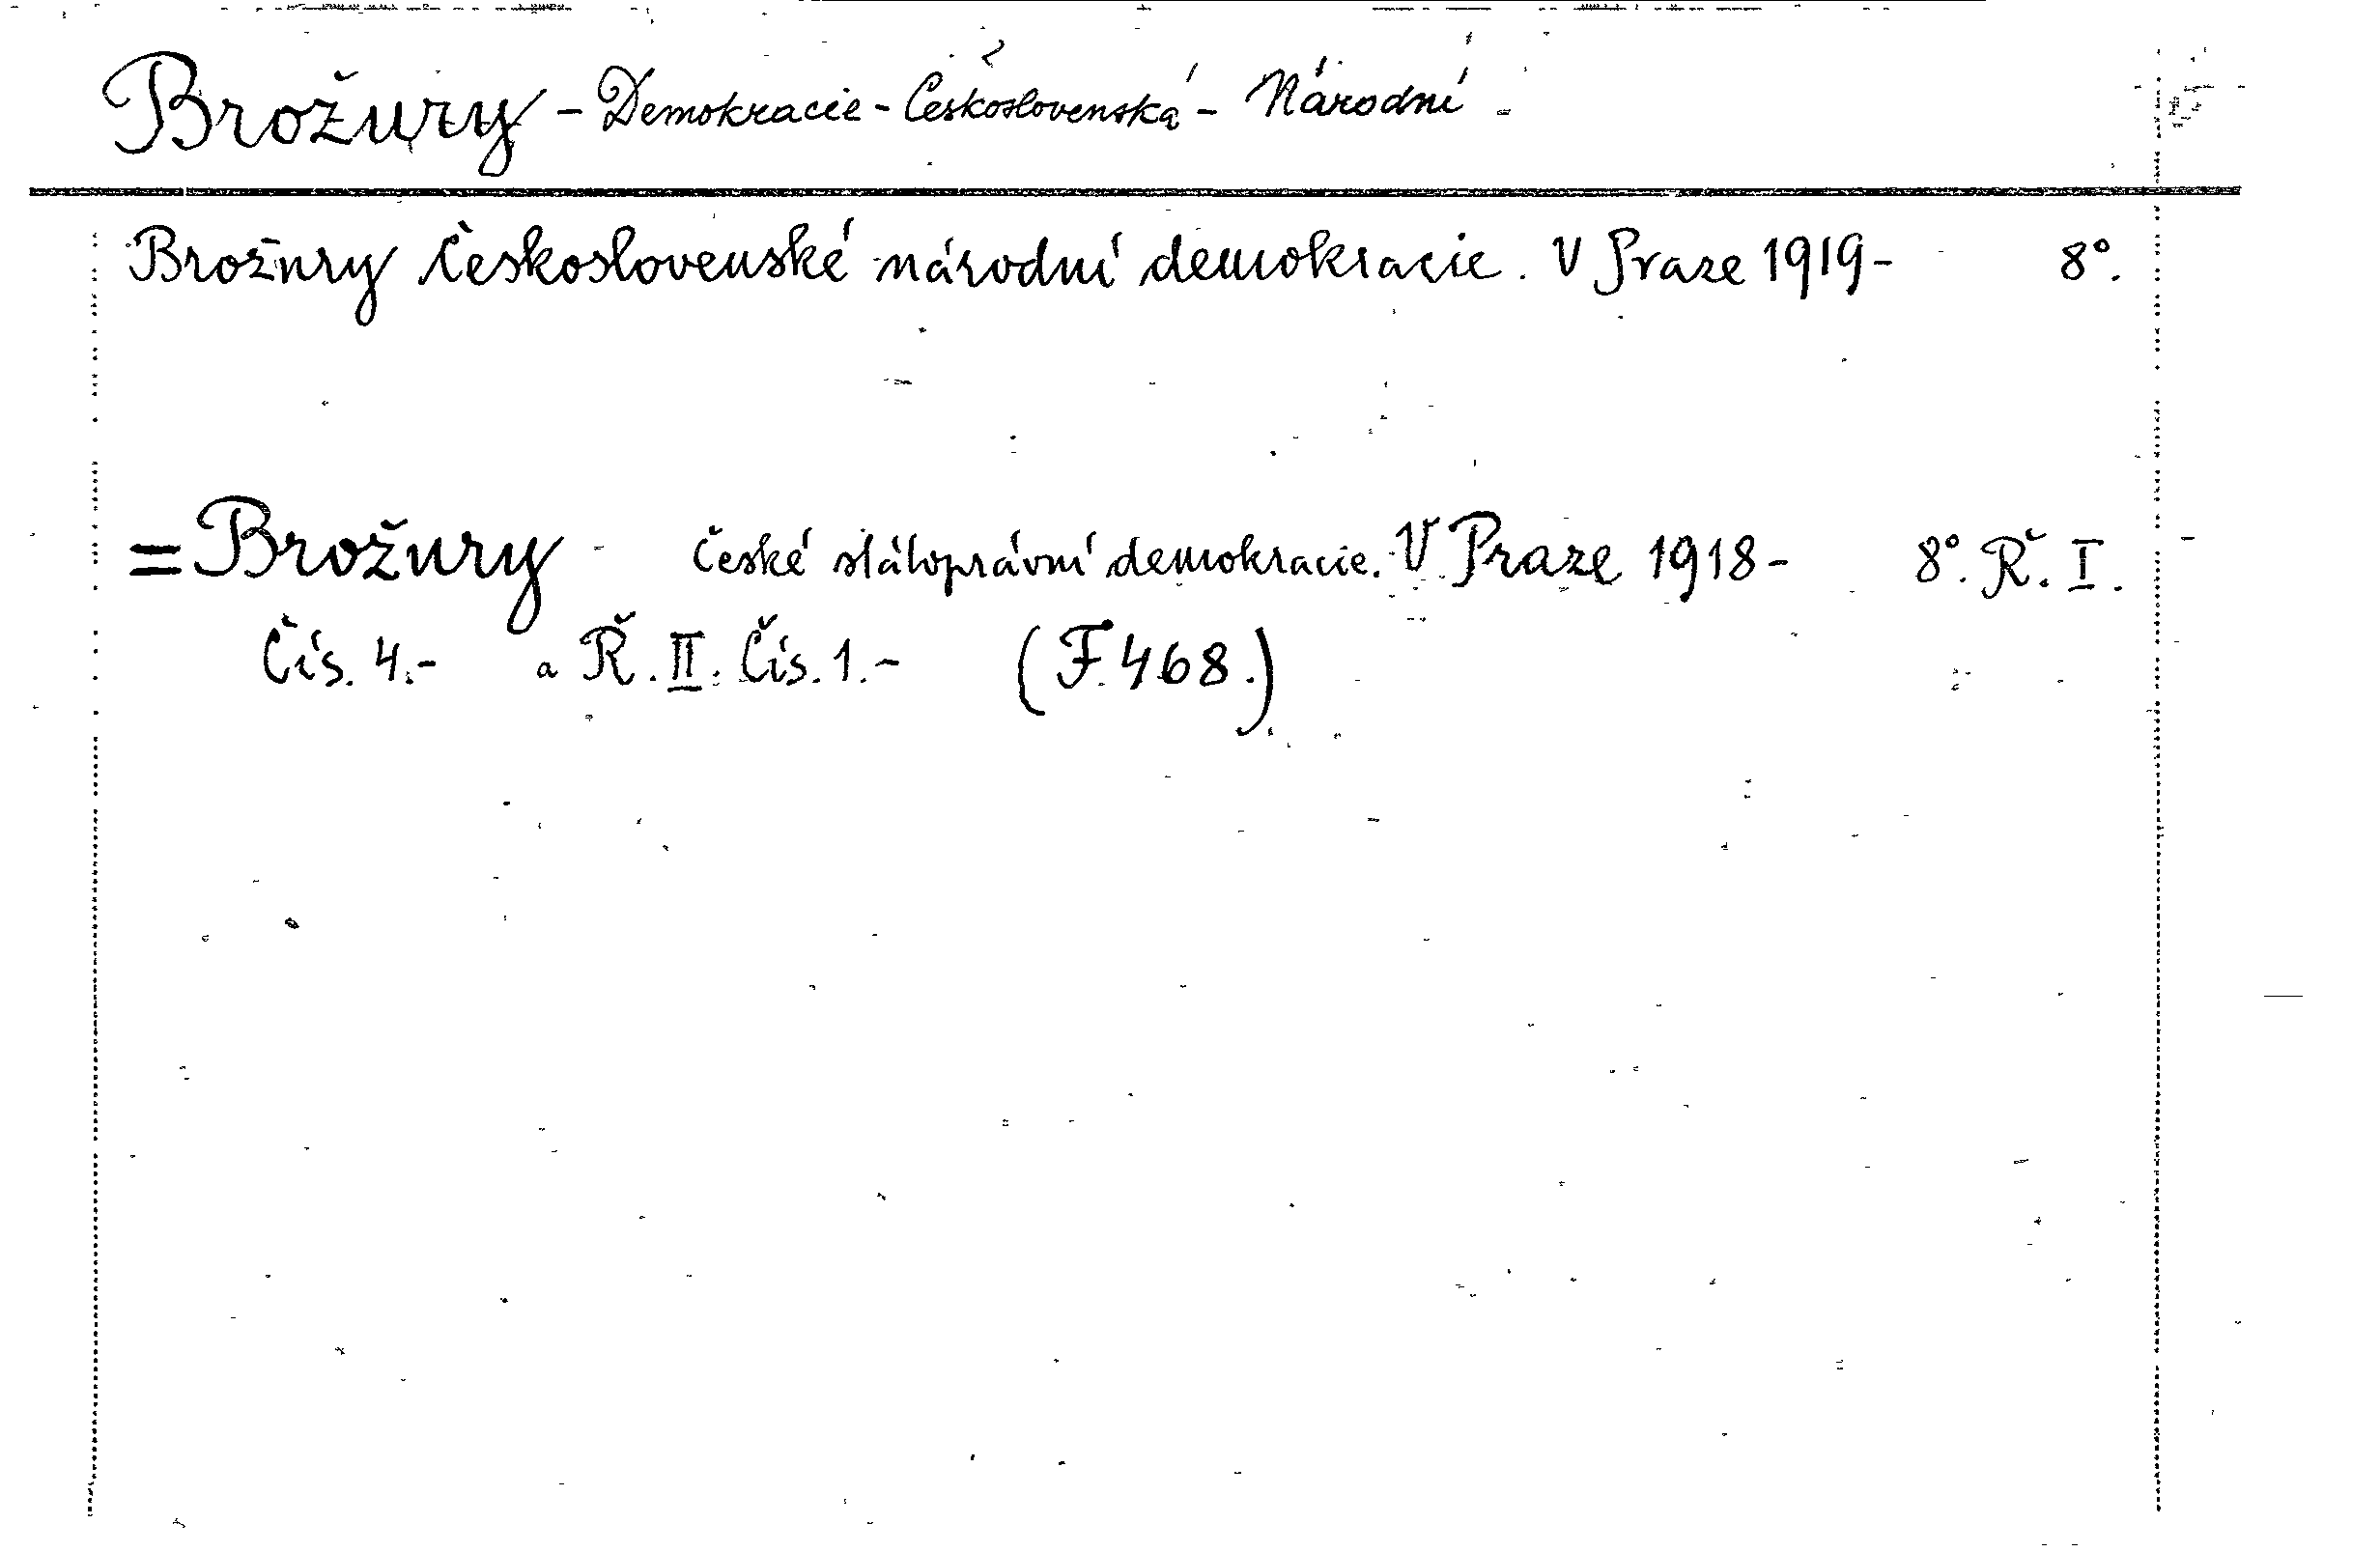 Brožury - Demokracie - Československá - Národní -
Brožury Československé národní demokracie. V Praze 1919- 8°.
= Brožury - České státoprávní demokracie. V Praze 1918- 8°. Ř. I.
Čís. 4.- a Ř. II. Čís. 1.- (F. 468.)